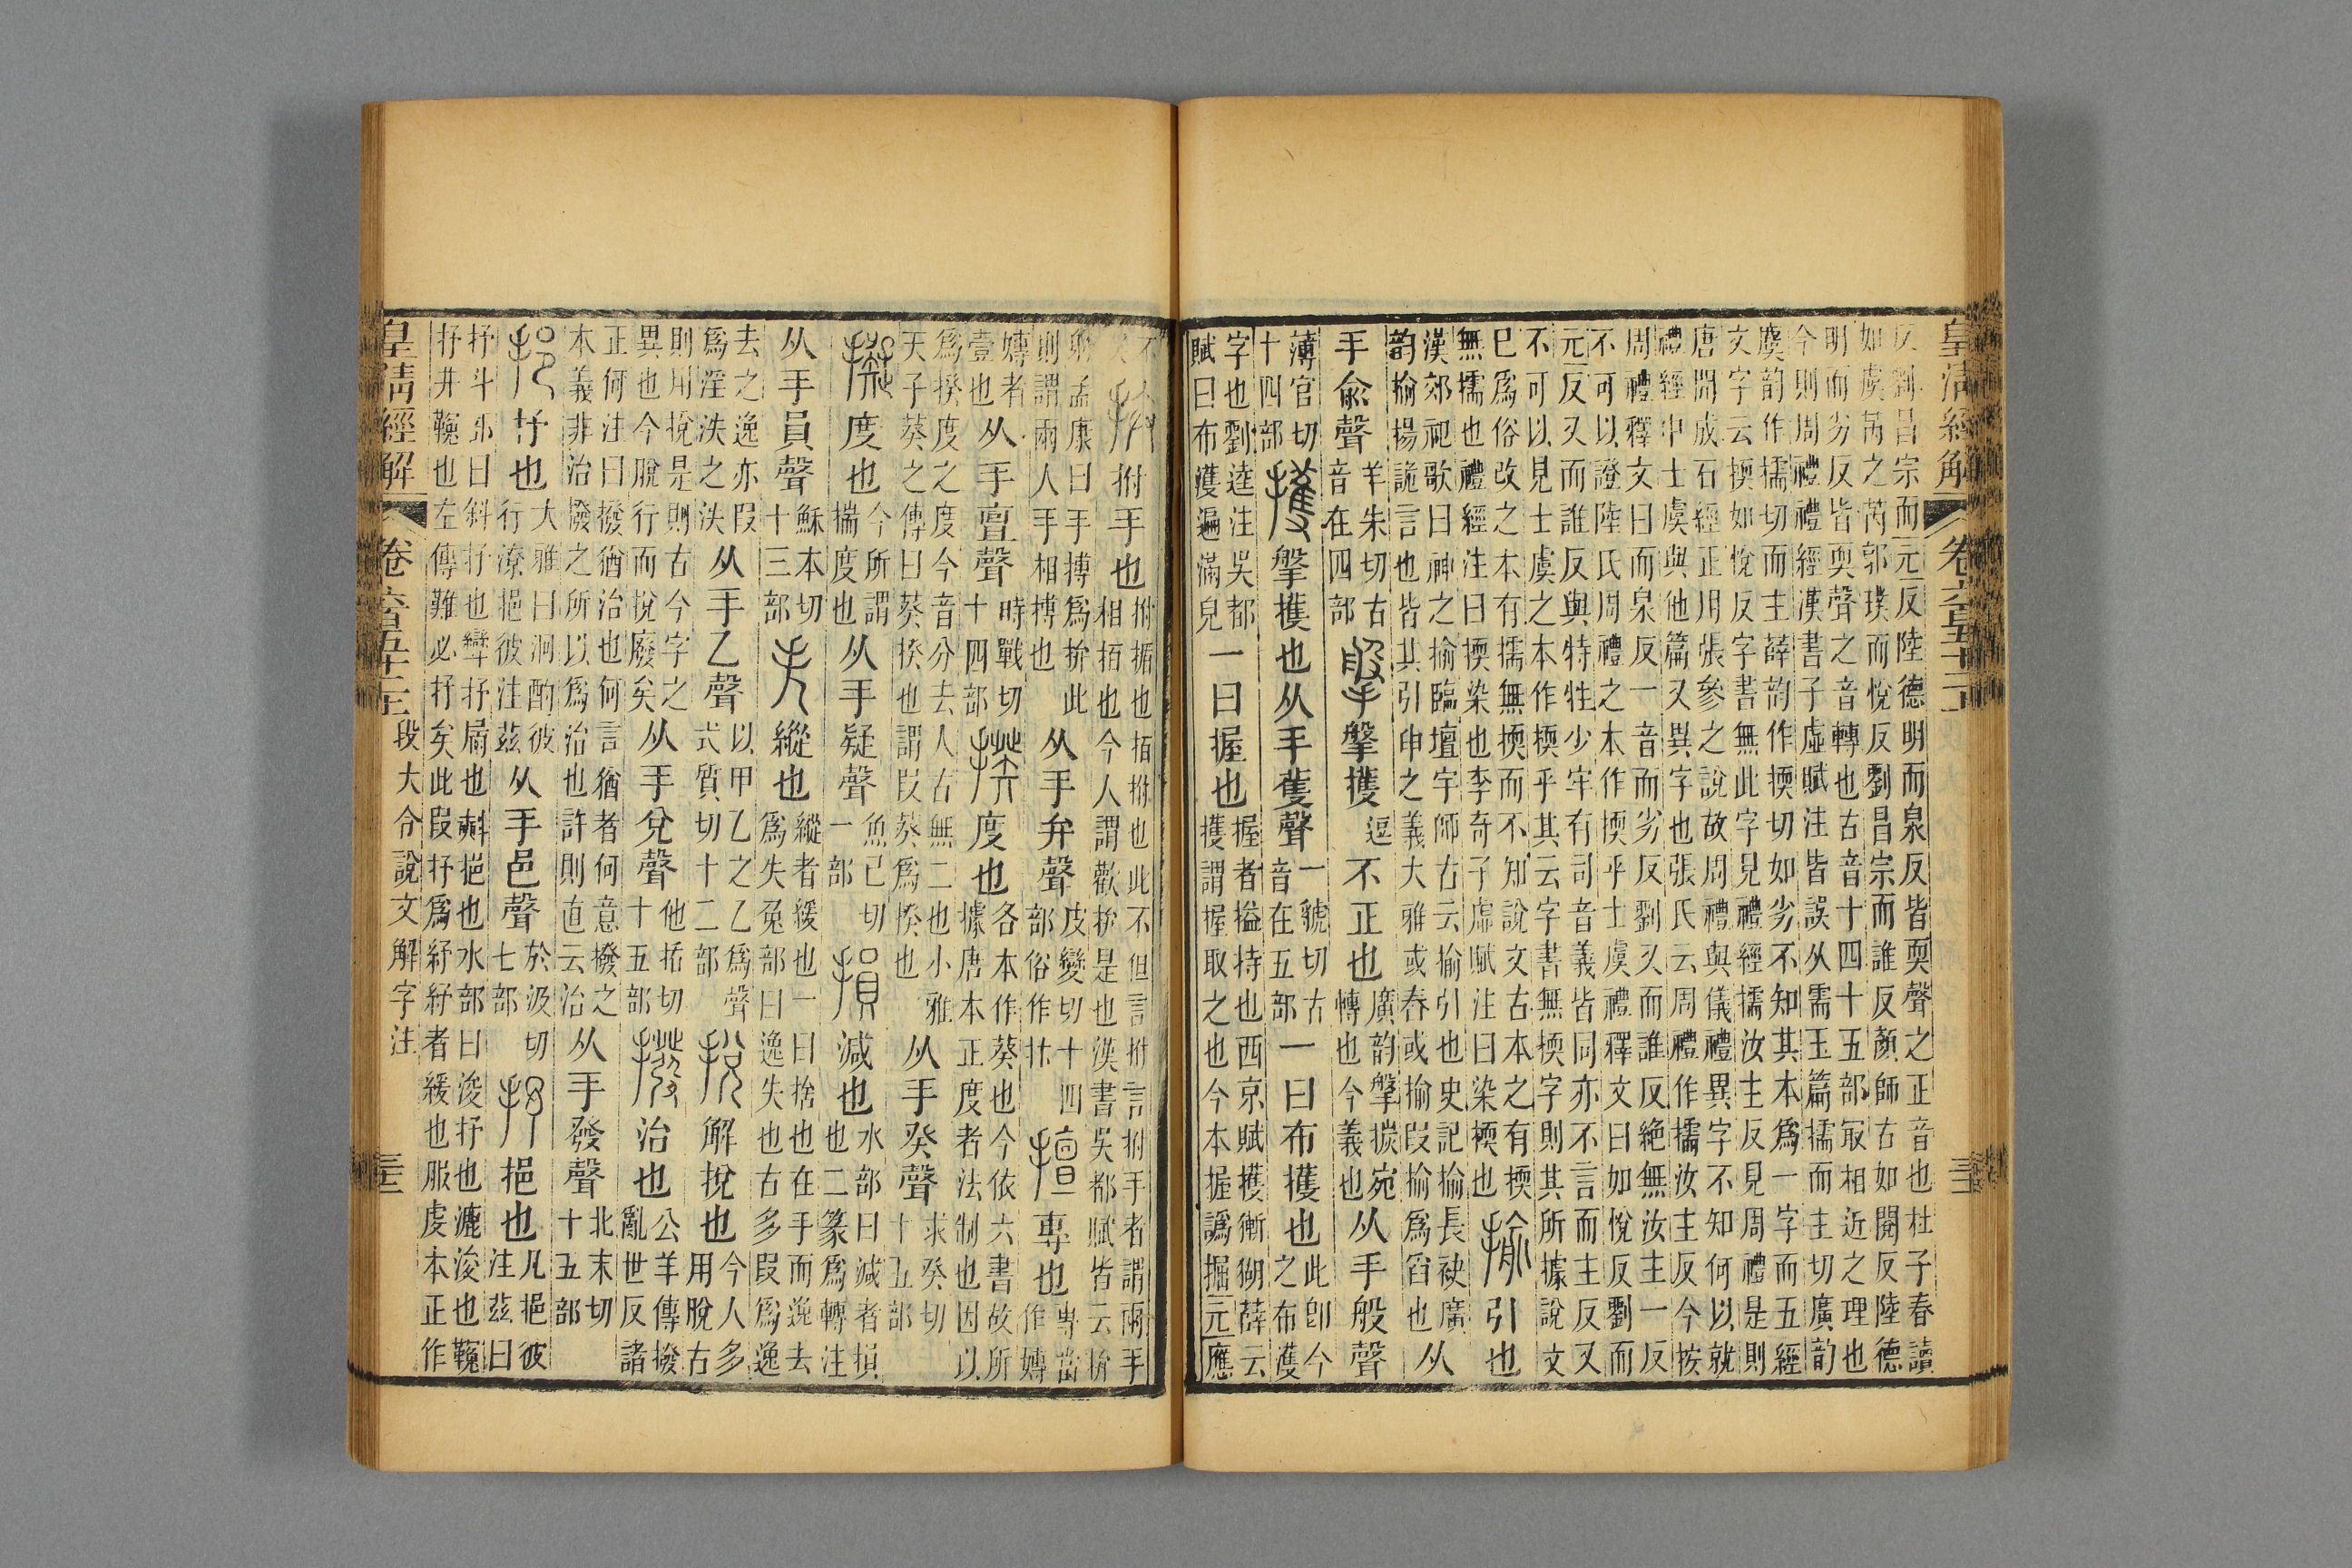 皇清經解 卷六百五十二上
反劉昌宗而元反陸德明而泉反皆耎聲之正音也杜子春讀
如虞芮之芮郭璞而悅反劉昌宗而誰反顏師古如閱反陸德
明而劣反皆耎聲之音轉也古音十四十五部冣相近之理也
今則周禮禮經漢書子虛賦注皆誤从需玉篇擩而主切廣韵
虞韵作擩切而主薛韵作㨎切如劣不知其本爲一字而五經
文字云㨎如悅反字書無此字見禮經擩汝主反見周禮是則
唐開成石經正用張參之說故周禮與儀禮異字不知何以就
禮經中士虞與他篇又異字也張氏云周禮作擩汝主反今按
周禮釋文曰而泉反一音而劣反劉又而誰反絶無汝主一反
不可以證陸氏周禮之本作㨎乎士虞禮釋文曰如悅反劉而
元反又而誰反與特牲少牢有司音義皆同亦不言而主反又
不可以見士虞之本作㨎乎其云字書無㨎字則其所據說文
巳爲俗改之本有擩無㨎而不知說文古本之有㨎
無擩也禮經注曰㨎染也李奇子虛賦注曰染㨎也 揄 引也
漢郊祀歌曰神之揄臨壇宇師古云揄引也史記揄長袂廣
韵揄揚詭言也皆其引申之義大雅或舂或揄叚揄爲舀也 从
手俞聲 羊朱切古音在四部 搫 搫擭 逗 不正也 廣韵搫㩓宛轉也今義也 从手般聲
薄官切十四部 擭 搫擭也从手蒦聲 一虢切古音在五部 一曰布擭也 此卽今之布濩
字也劉逵注吳都賦曰布濩遍滿皃 一曰握也 握者搤持也西京賦擭獑猢薛云擭謂握取之也今本握譌掘元應
拚 拊手也 拊揗也拍拊也此不但言拊言拊手者謂兩手相拍也今人謂歡拚是也漢書吳都賦皆云拚
射孟康曰手搏爲拚此則謂兩人手相搏也 从手弁聲 皮變切十四部俗作抃 擅 專也 專當作嫥
嫥者壹也 从手亶聲 時戰切十四部 揆 度也 各本作葵也今依六書故所據唐本正度者法制也因以
爲揆度之度今音分去人古無二也小雅天子葵之傳曰葵揆也謂叚葵爲揆也 从手癸聲 求癸切十五部
擬 度也 今所謂揣度也 从手疑聲 魚已切一部 損 減也 水部曰減者損也二篆爲轉注
从手員聲 穌本切十三部 失 縱也 縱者緩也一曰捨也在手而逸去爲失兔部曰逸失也古多叚爲逸
去之逸亦叚爲淫泆之泆 从手乙聲 以甲乙之乙爲聲式質切十二部 捝 解捝也 今人多用脫古
則用捝是則古今字之異也今脫行而捝廢矣 从手兌聲 他括切十五部 撥 治也 公羊傳撥亂世反諸
正何注曰撥猶治也何言猶者何意撥之本義非治撥之所以爲治也許則直云治 从手發聲 北末切十五部
挹 抒也 大雅曰泂酌彼行潦挹彼注茲 从手邑聲 於汲切七部 抒 挹也 凡挹彼注茲曰
抒斗部曰斜抒也㪻抒屚也㪺挹也水部曰浚抒也漉浚也鞔
抒井鞔也左傳難必抒矣此叚抒爲紓紓者緩也服虔本正作
皇清經解 卷六百五十二上 段大令說文解字注